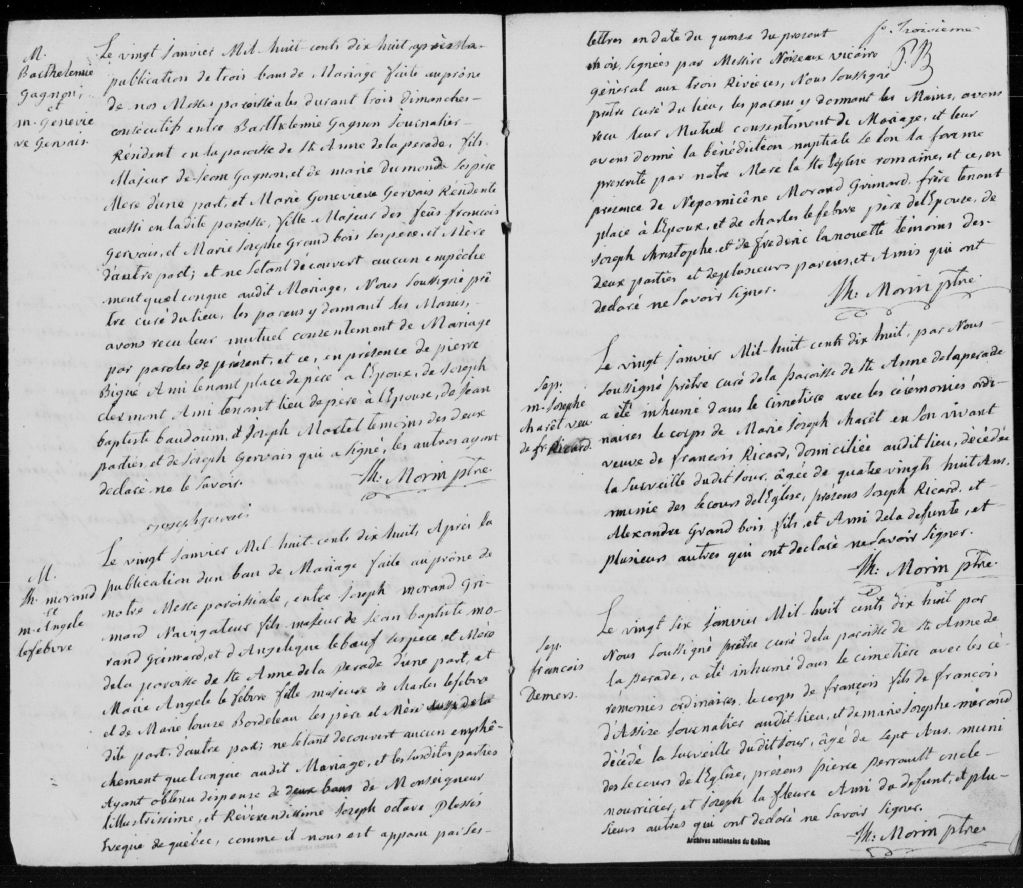 M.
Barthelemie
Gagnon,
et
m. Genevie
ve Gervais
Le vingt janvier Mil-huit cents dix huit, après la
publication de trois bans de Mariage faite au prône
de nos Messes paroissiales durant trois dimanches
consécutifs entre Barthelemie Gagnon Journalier
Résident en la paroisse de Ste Anne de la perade, fils
Majeur de Jean Gagnon, et de marie dumond ses père
Mere d'une part, et Marie Genevieve Gervais Résidente
aussi en la dite paroisse, fille Majeur des feûs francois
Gervais, et Marie Josephe Grand bois ses père, et Mère
d'autre part; et ne s'étant découvert aucun empêche
ment quelconque audit Mariage, Nous Soussigné prê
tre curé du lieu, les parens y donnant les Mains,
avons recu leur mutuel consentement de Mariage
par paroles de présent, et ce, en présence de pierre
Bigué Ami tenant place de père à l'Epoux, de Joseph
clermont Ami tenant lieu de pere à l'Epouse, de Jean
baptiste baudouin, et Joseph Martel temoins des deux
parties, et de Joseph Gervais qui a signé, les autres ayant
declaré ne le Savoir.
Th: Morin ptre.
joseph gervais
M.
Jh. morand
et
m. Angele
lefebvre
Le vingt janvier Mil huit-cents dix huit, Après la
publication d'un ban de Mariage faite au prône de
notre Messe paroissiale, entre Joseph morand Gri-
mard Navigateur fils majeur de Jean baptiste mo-
rand Grimard, et d'Angelique le bœuf ses pere, et Mère
de la paroisse de Ste Anne de la perade d'une part, et
Marie Angele le febvre fille majeure de Charles lefebvre
et de Marie louize Bordeleau ses père et Mère aussi de la
dite part. d'autre part; ne s'étant decouvert aucun empê-
chement quelconque audit Mariage, et les susdites parties
Ayant obtenu dispense de deux bans de Monseigneur
l'illustrissime, et Réverendissime Joseph octave plessis
Eveque de québec, comme il nous est apparu par Ses-
fe Troisieme
lettres en date du quinze du present
mois, signées par Messire Noiseaux vicaire
général aux trois Rivieres, Nous Soussigné
prêtre curé du lieu, les parens y donnant les Mains, avons
recu leur Mutuel consentement de Mariage, et leur
avons donné la bénédiction nuptiale selon la forme
prescrite par notre Mere la Ste Eglise romaine, et ce, en
présence de Nepomicène Morand Grimard frère tenant
place à l'Epoux, et de charles lefebvre pere de l'Epouse, de
Joseph christophe, et de frederic lanouette témoins des
deux parties et de plusieurs parens, et Amis qui ont
declaré ne Savoir signer.
Th: Morin ptre
Sep.
m. Josephe
charêt veu
de fr. Ricard.
Le vingt janvier Mil-huit cents dix huit, par Nous
Soussigné prêtre curé de la paroisse de Ste Anne de la perade
a été inhumé dans le cimetière avec les cérémonies ordi
naires le corps de Marie Joseph charêt en Son vivant
veuve de françois Ricard, domiciliée audit lieu, décédée
la Surveille du dit Jour, âgée de quatre vingts huit Ans,
munie des Secours de l'Eglise, présens Joseph Ricard, et
Alexandre Grand bois fils, et Ami de la defunte, et
plusieurs autres qui ont declaré ne Savoir Signer.
Th: Morin ptre.
Sep.
françois
Demers.
Le vingt six janvier Mil huit cents dix huit par
Nous Soussigné prêtre curé de la paroisse de Ste Anne de
la perade, a été inhumé dans le cimetière avec les cé-
remonies ordinaires, le corps de françois fils de françois
d'Assize Journalier audit lieu, et de marie Josephe mérand
décédé la Surveille du dit Jour, âgé de Sept Ans, muni
des Secours de l'Eglise, présens pierre perrault oncle
nourricier, et Joseph la fleure Ami du defunt, et plu-
sieurs autres qui ont declaré ne Savoir signer.
Th: Morin ptre
Archives nationales du Québec